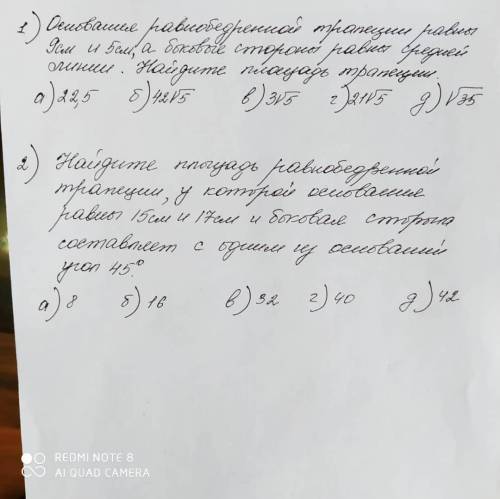 1) Основания равнобедренной трапеции равны
9см и 5см, а боковые стороны равны средней
линии. Найдите площадь трапеции.
а) 22,5 б) 42√5 в) 3√5 г) 21√5 д) √35
2) Найдите площадь равнобедренной
трапеции, у которой основания
равны 15см и 17см и боковая сторона
составляет с одним из оснований
угол 45°.
а) 8 б) 16 в) 32 г) 40 д) 42
REDMI NOTE 8
AI QUAD CAMERA